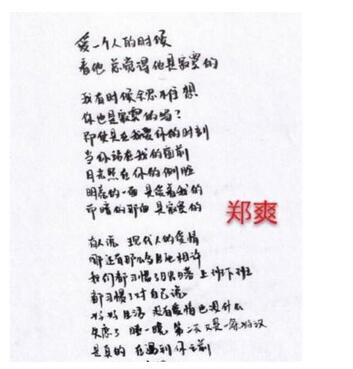 爱一个人的时候
看他总觉得他是寂寞的
我有时候会忍不住想
你也是寂寞的吗？
即使是在我爱你的时刻
当你站在我的面前
月光照在你的侧脸
明亮的一面是爱着我的
而暗的那面是寂寞的
郑爽
有人说 现代人的爱情
哪还有那么多以身相许
我们都习惯了日出日落 上班下班
都习惯了对自己说
好好生活 没有爱情也没什么
失恋了 睡一晚 第二天又是一条好汉
是真的 在遇到你之前